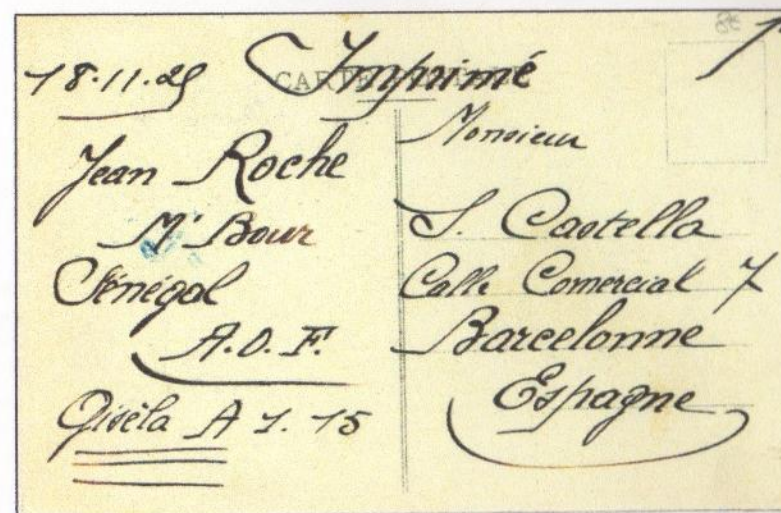 18.11.25
Imprimé
CARTE
Jean Roche
M'Bour
Sénégal
A.O.F.
Giséla A 1.15
Monsieur
S. Castella
Calle Comercial 7
Barcelonne
Espagne